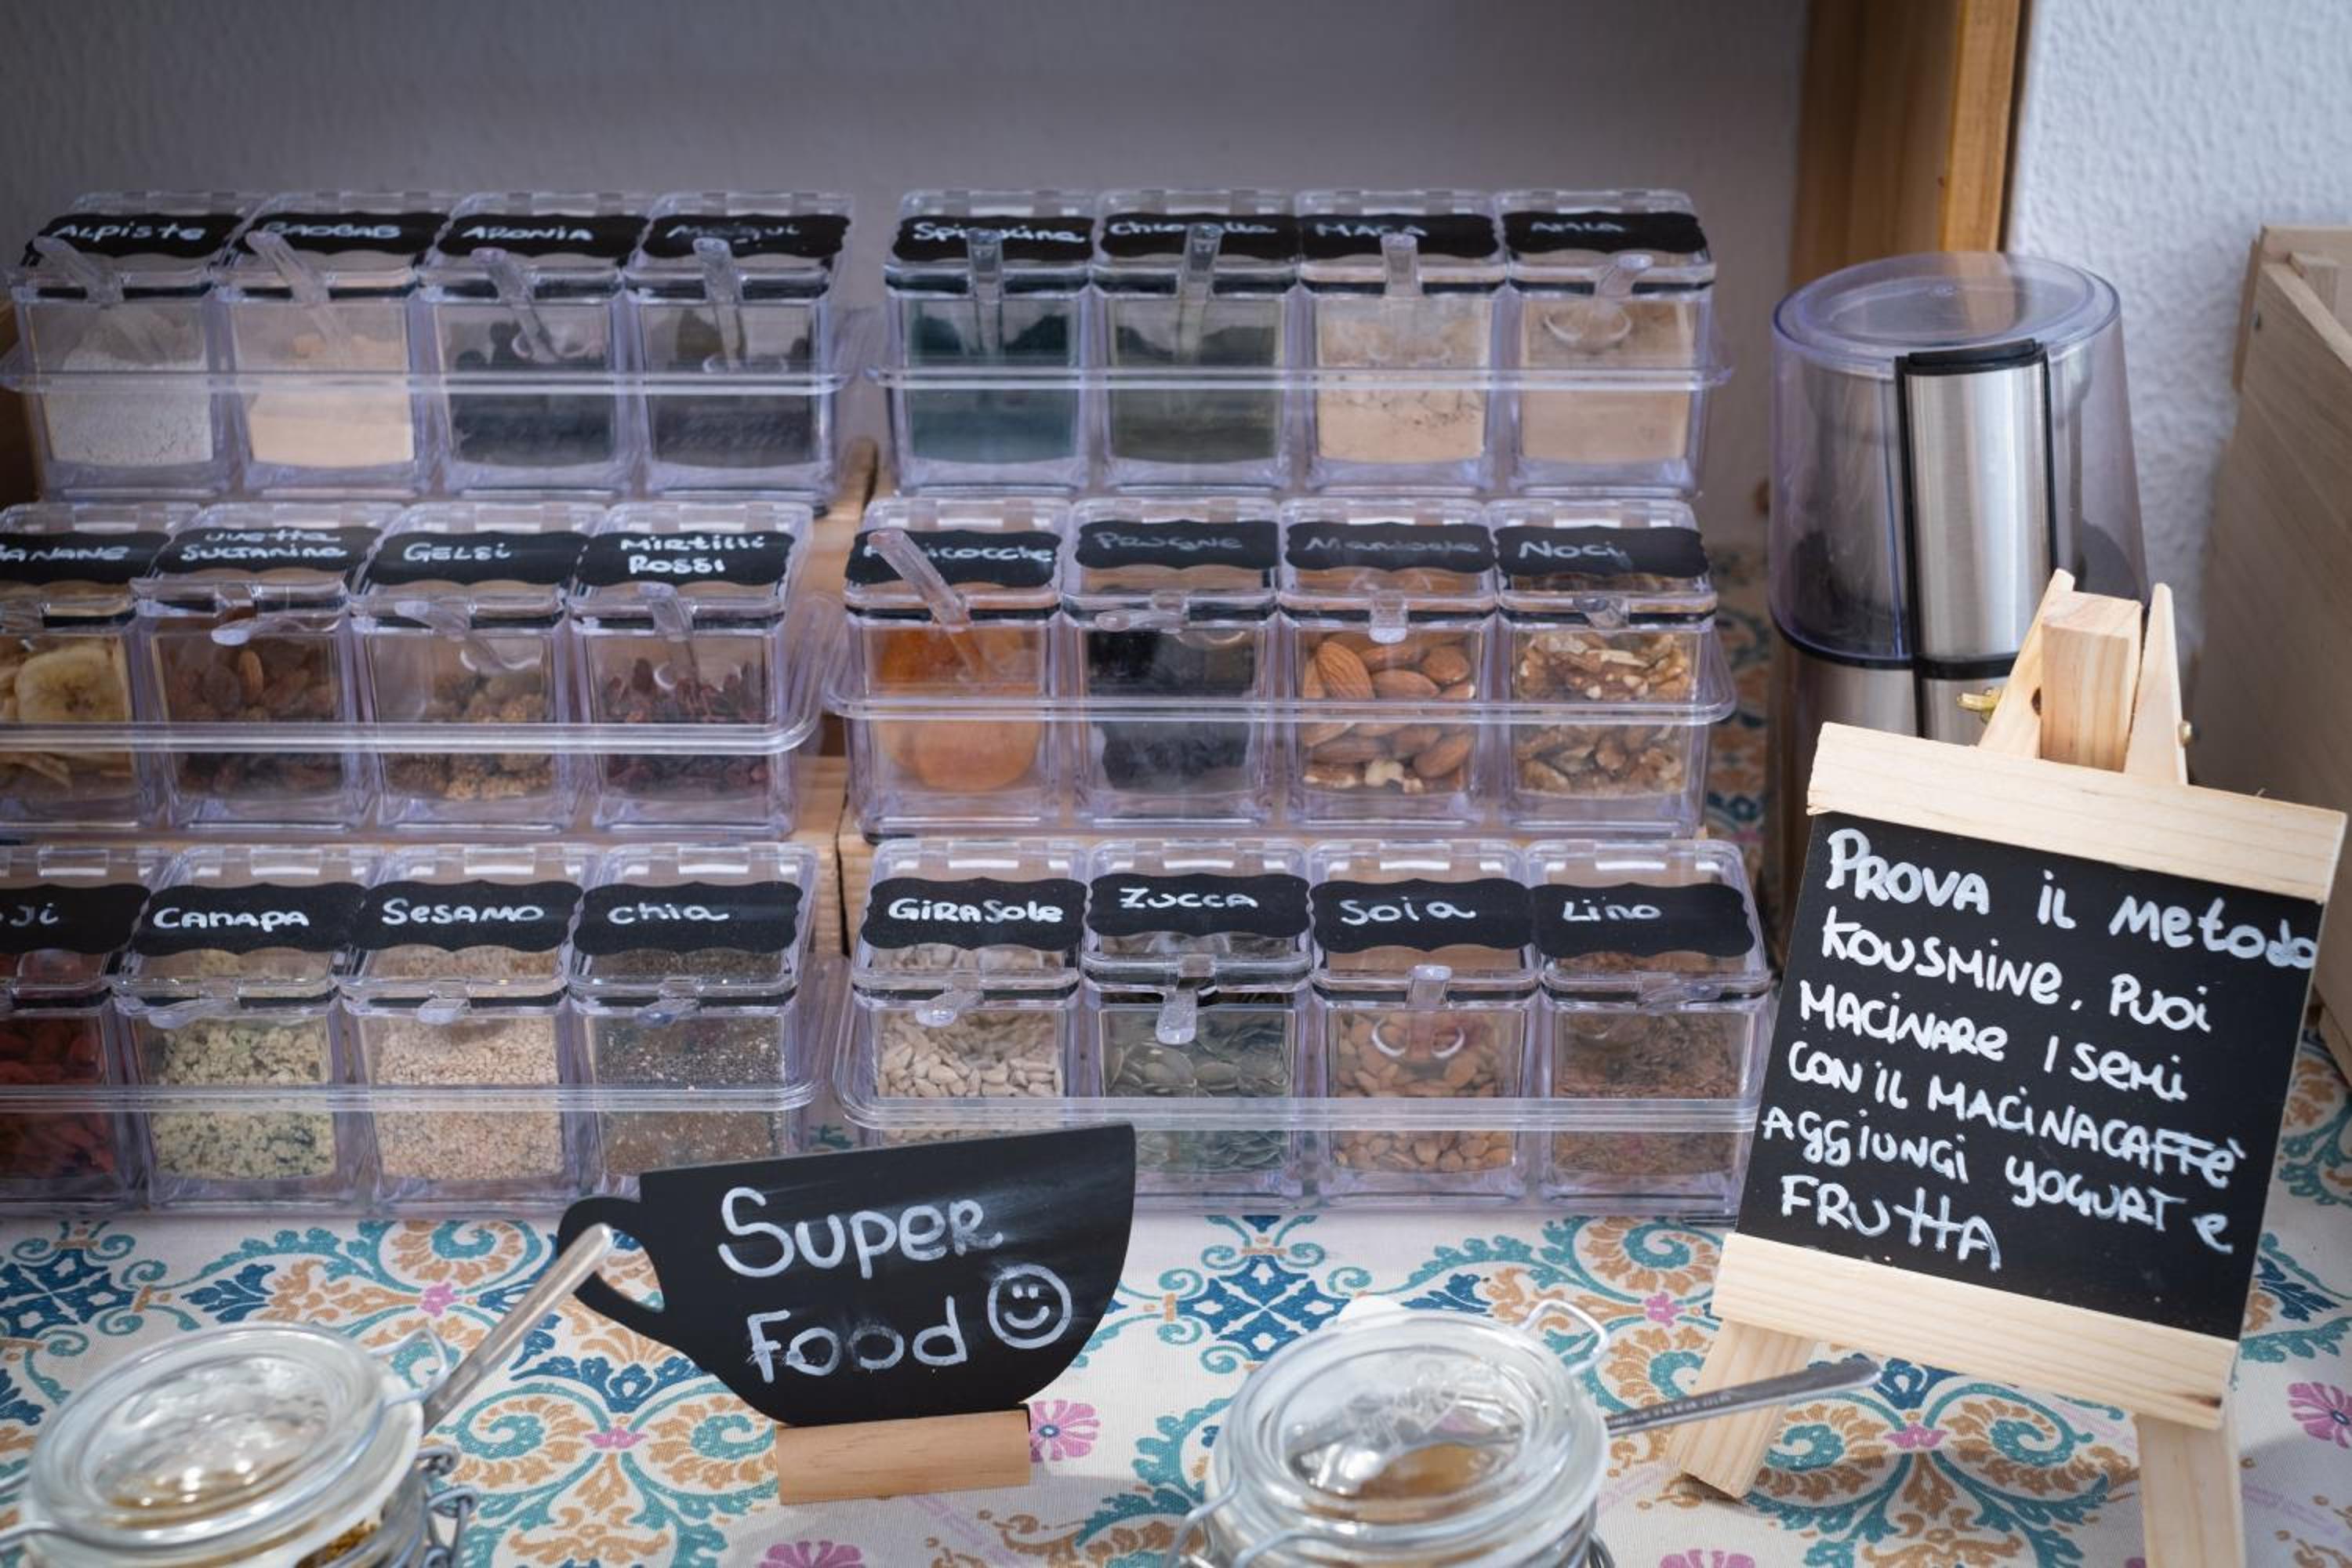 ALPiste
BAOBAB
ARONIA
Maqui
Spirulina
Chlorella
MACA
AMLA
BANANE
uvetta
SULTANINA
GELSI
MIRTILLI
ROSSI
Albicocche
PRUGNE
Mandorle
Noci
CANAPA
SeSAMO
chia
GIRASole
ZUCCA
Soia
Lino
PROVA iL Metodo
KOUSMINE. PUOi
MACINARe I SeMi
CON iL MACiNACAFFè
AGGIUNGi YOGURT e
FRUttA
SupeR
Food